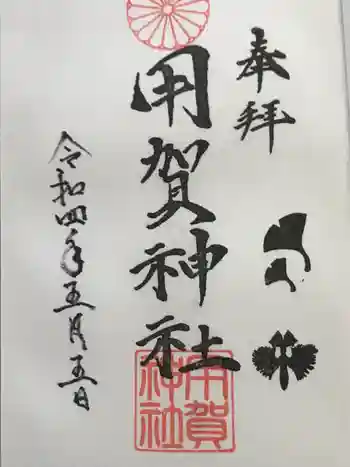 奉拝
用賀神社
令和四年五月五日
用賀
神社